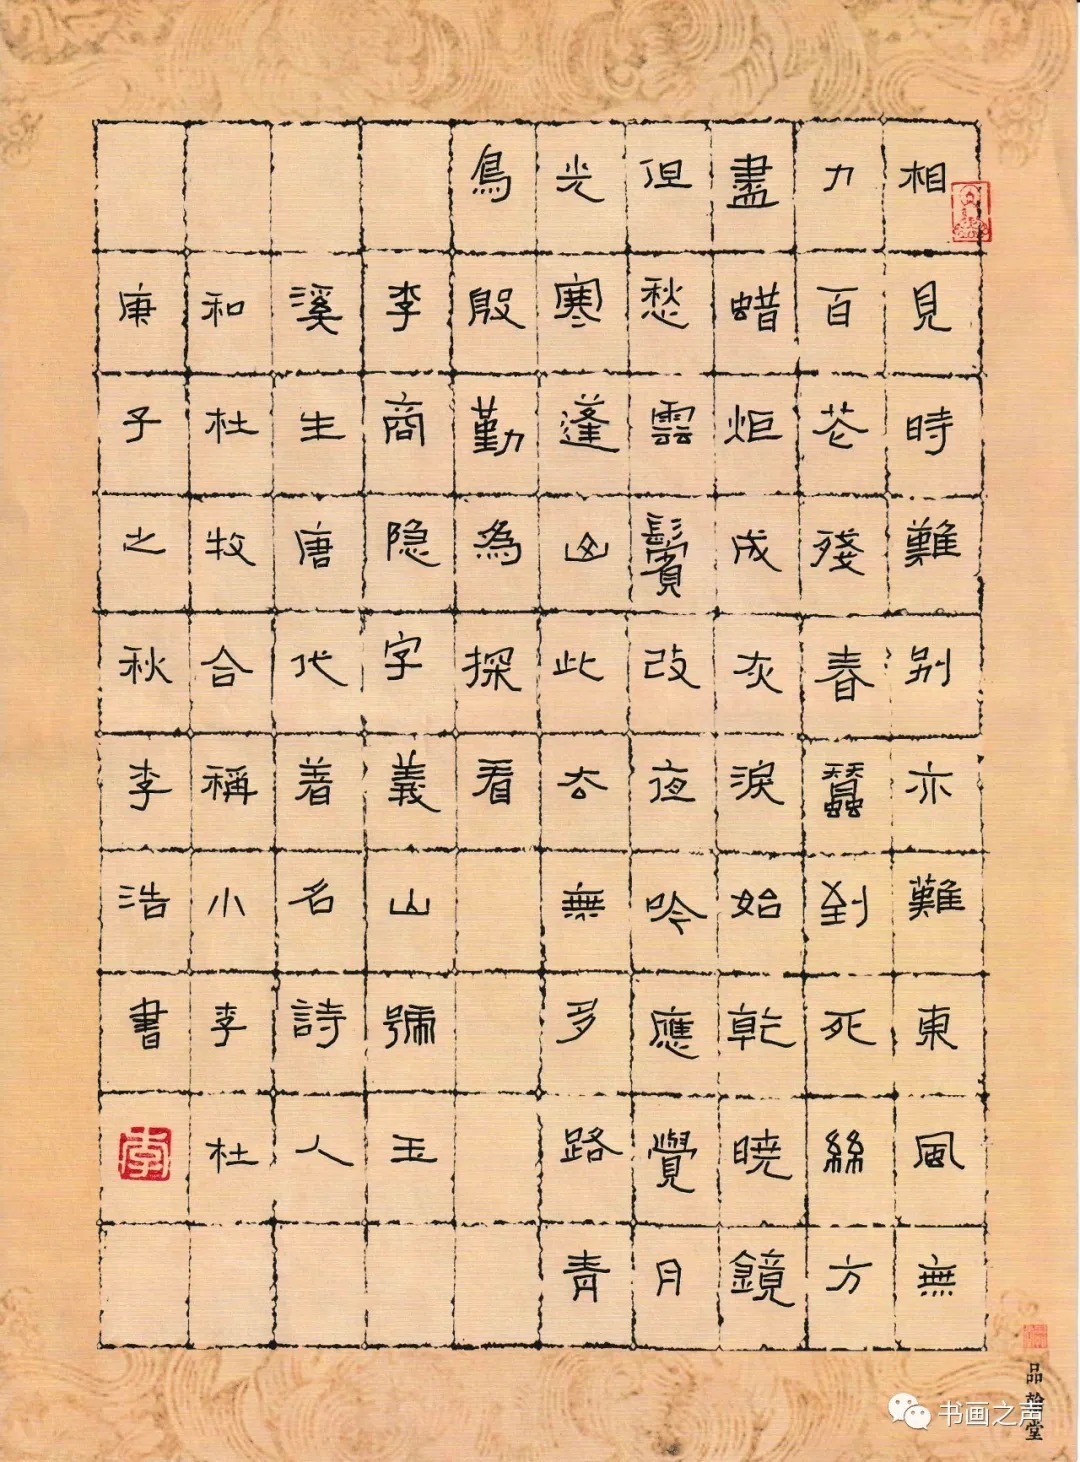 相見時難别亦難東風無
力百花殘春蠶到死絲方
盡蜡炬成灰淚始乾曉鏡
但愁雲鬢改夜吟應覺月
光寒蓬山此去無多路青
鳥殷勤為探看
李商隐字義山號玉
溪生唐代著名詩人
和杜牧合稱小李杜
庚子之秋李浩書
李
品翰堂
书画之声